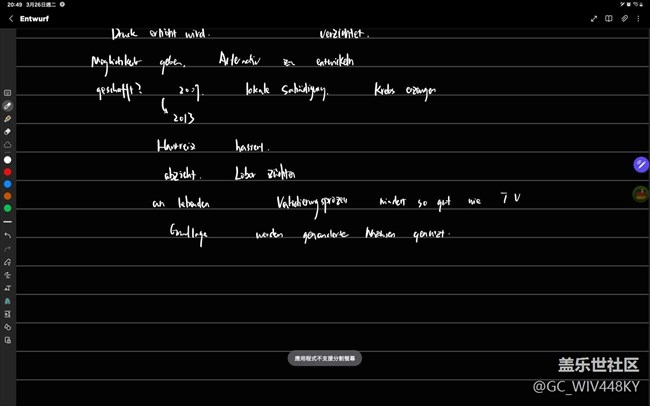 20:49 3月26日週二
Entwurf
Druck erhöht wird. verzichtet.
Möglichkeit geben, Alternativ zu entwickeln
geschafft? 2007. lokale Schädigung. Krebs erzeugen
2013
Hautreiz
abzieht. Labor züchten
an lebenden Validierungsprozess mindest so gut wie TV
Grundlage werden genutzt.
應用程式不支援分割螢幕
盖乐世社区
@GC_WIV448KY